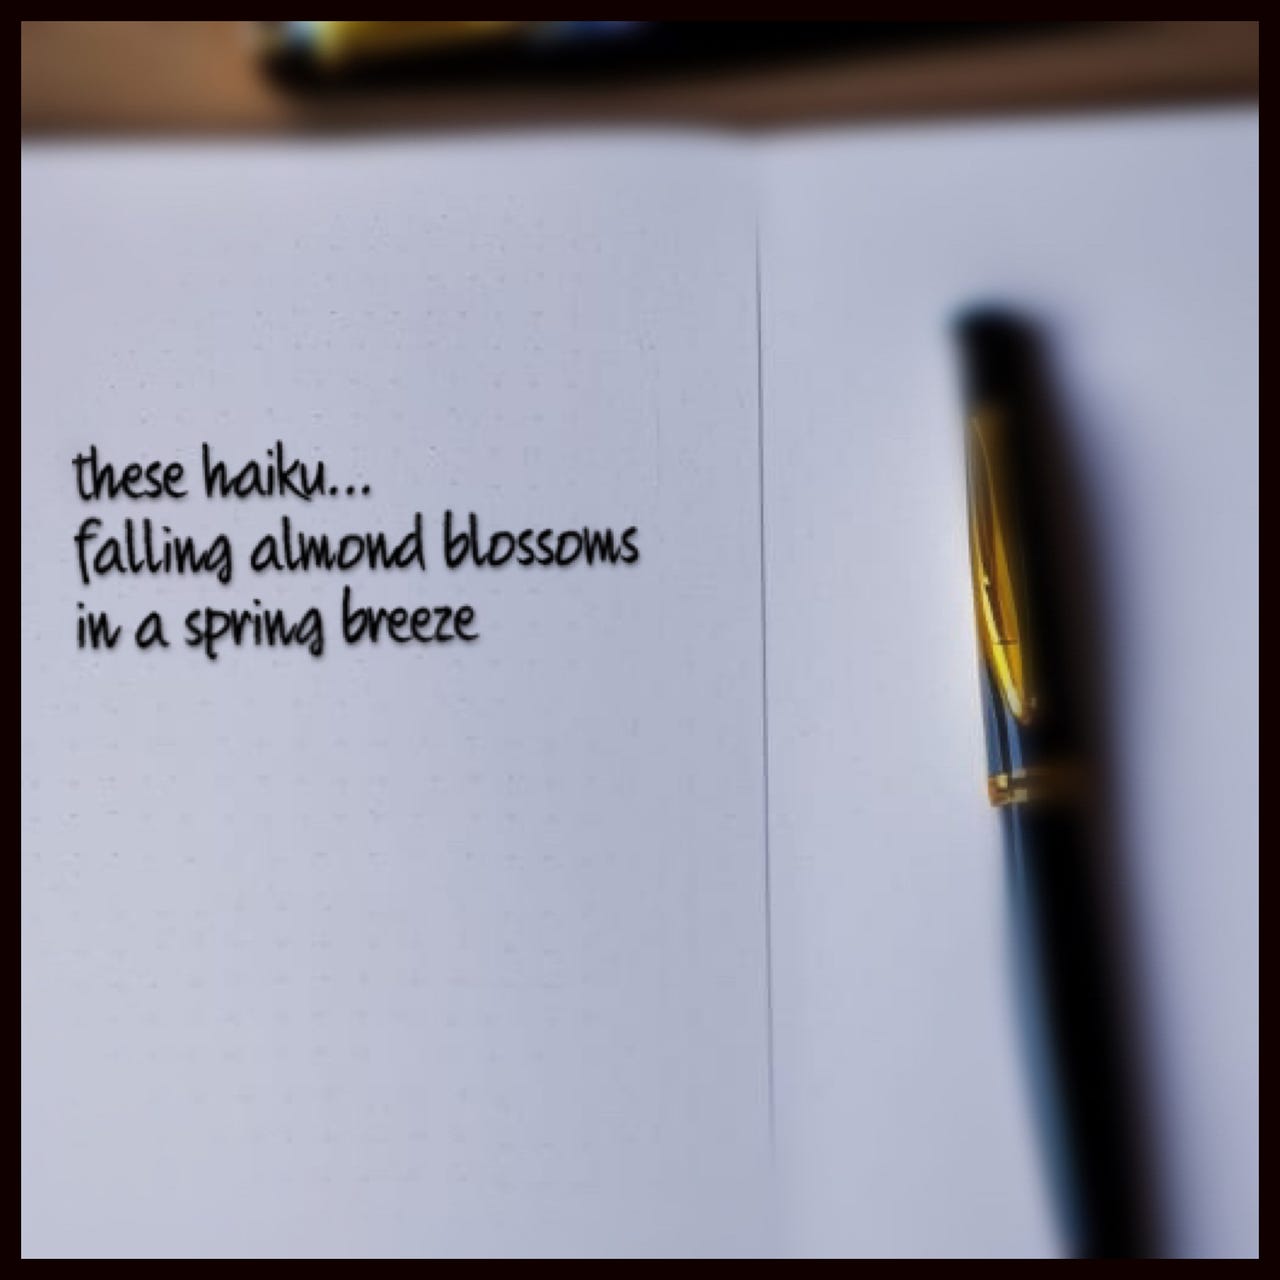 these haiku...
falling almond blossoms
in a spring breeze